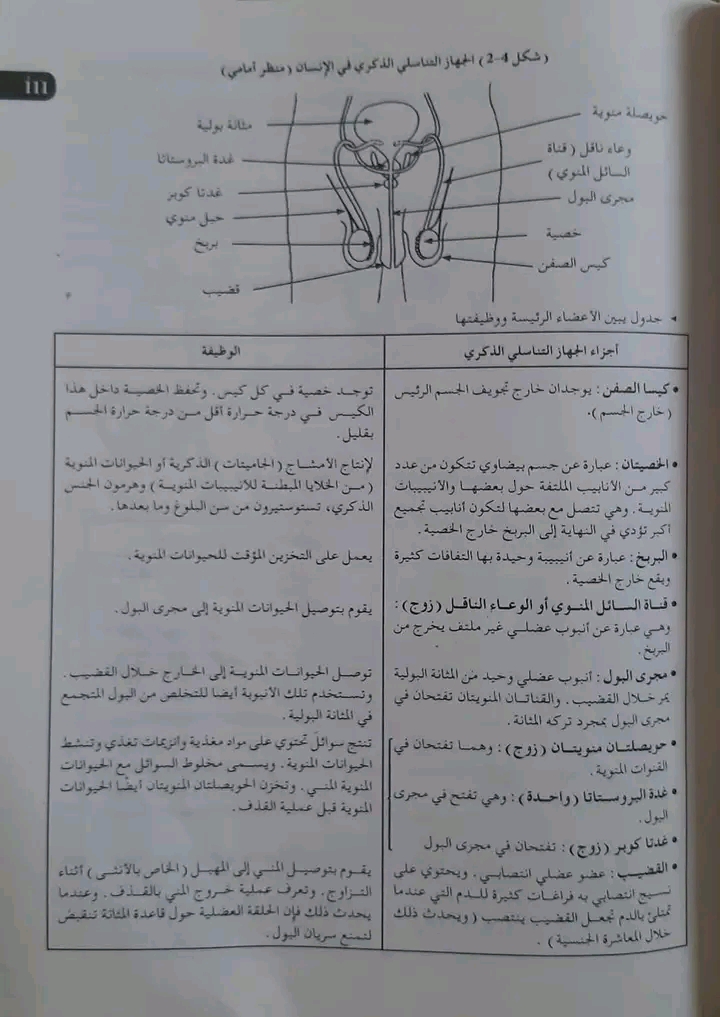 (شكل 4-2) الجهاز التناسلي الذكري في الإنسان (منظر أمامي)
حويصلة منوية
وعاء ناقل (قناة
السائل المنوي)
مجرى البول
خصية
كيس الصفن
مثانة بولية
غدة البروستاتا
غدتا كوبر
حبل منوي
بربخ
قضيب
جدول يبين الأعضاء الرئيسة ووظيفتها
أجزاء الجهاز التناسلي الذكري
الوظيفة
• كيسا الصفن : يوجدان خارج تجويف الجسم الرئيس
(خارج الجسم).
توجد خصية في كل كيس. وتحفظ الخصية داخل هذا
الكيس في درجة حرارة أقل من درجة حرارة الجسم
بقليل.
• الخصيتان : عبارة عن جسم بيضاوي تتكون من عدد
كبير من الأنابيب الملتفة حول بعضها والأنيبيبات
المنوية. وهي تتصل مع بعضها لتكون أنابيب تجميع
أكبر تؤدي في النهاية إلى البربخ خارج الخصية.
لإنتاج الأمشاج (الجاميتات) الذكرية أو الحيوانات المنوية
(من الخلايا المبطنة للأنيبيبات المنوية) وهرمون الجنس
الذكري، تستوستيرون من سن البلوغ وما بعدها.
• البربخ : عبارة عن أنيبيبة وحيدة بها التفافات كثيرة
ويقع خارج الخصية.
يعمل على التخزين المؤقت للحيوانات المنوية.
• قناة السائل المنوي أو الوعاء الناقل (زوج) :
وهي عبارة عن أنبوب عضلي غير ملتف يخرج من
البربخ.
يقوم بتوصيل الحيوانات المنوية إلى مجرى البول.
• مجرى البول : أنبوب عضلي وحيد من المثانة البولية
يمر خلال القضيب. والقناتان المنويتان تفتحان في
مجرى البول بمجرد تركه المثانة.
توصل الحيوانات المنوية إلى الخارج خلال القضيب.
وتستخدم تلك الأنبوبة أيضا للتخلص من البول المتجمع
في المثانة البولية.
• حويصلتان منويتان (زوج) : وهما تفتحان في
القنوات المنوية.
• غدة البروستاتا (واحدة) : وهي تفتح في مجرى
البول.
• غدتا كوبر (زوج) : تفتحان في مجرى البول
تنتج سوائل تحتوي على مواد مغذية وأنزيمات تغذي وتنشط
الحيوانات المنوية. ويسمى مخلوط السوائل مع الحيوانات
المنوية المني. وتخزن الحويصلتان المنويتان أيضًا الحيوانات
المنوية قبل عملية القذف.
• القضيب : عضو عضلي انتصابي. ويحتوي على
نسيج انتصابي به فراغات كثيرة للدم التي عندما
تمتلئ بالدم تجعل القضيب ينتصب (ويحدث ذلك
خلال المعاشرة الجنسية).
يقوم بتوصيل المني إلى المهبل (الخاص بالأنثى) أثناء
التزاوج. وتعرف عملية خروج المني بالقذف. وعندما
يحدث ذلك فإن الحلقة العضلية حول قاعدة المثانة تنقبض
لتمنع سريان البول.